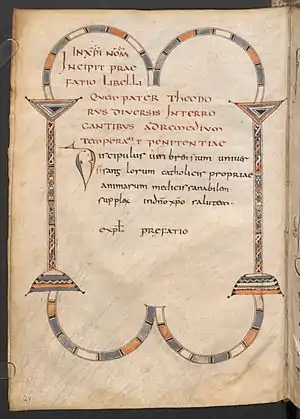 IN XPI NOM̄
INCIPIT PRAE
FATIO LIBELLI
QUEM PATER THEODO
RUS DIVERSIS INTERRO
GANTIBUS AD REMEDIUM
TEMPERAUIT PENITENTIAE
Discipulus umbrensium uniuersis
anglorum catholicis propriae
animarum medicis sanabilem
supplex in dn̄o xp̄o salutem.
expl̄ prefatio